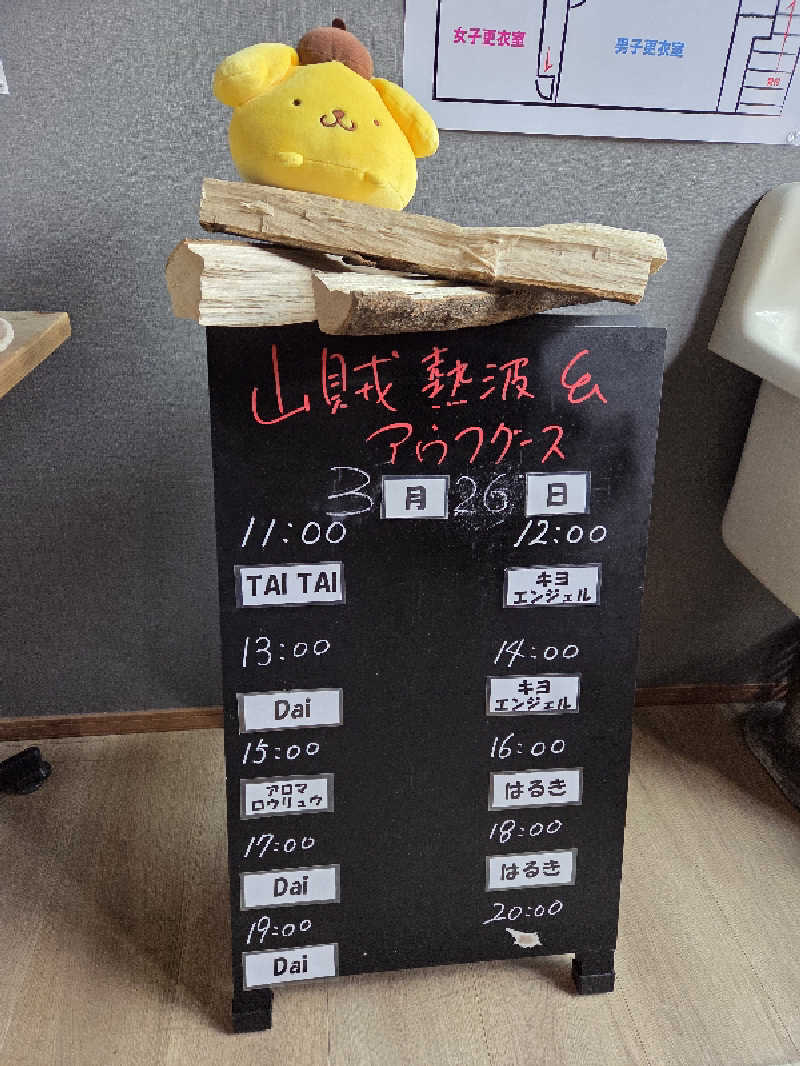 女子更衣室
男子更衣室
山賊 熱波 &
アウフグース
3月26日
11:00 12:00
TAI TAI キヨ
エンジェル
13:00 14:00
Dai キヨ
エンジェル
15:00 16:00
アロマ
ロウリュウ はるき
17:00 18:00
Dai はるき
19:00 20:00
Dai